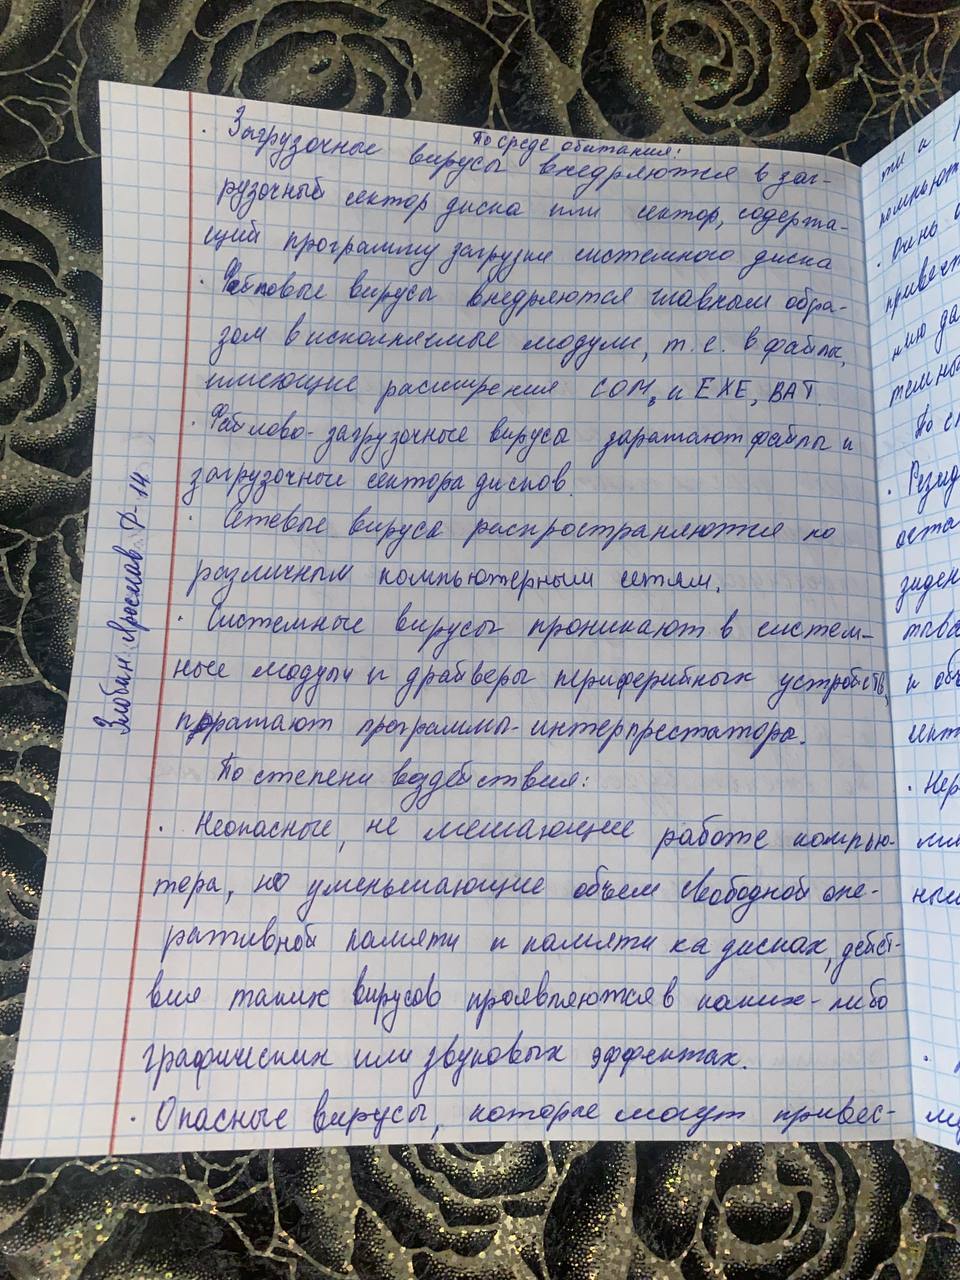 По среде обитания:
· Загрузочные вирусы внедряются в заг-
рузочный сектор диска или сектор, содержа-
щий программу загрузки системного диска
· Файловые вирусы внедряются главным обра-
зом в исполняемые модули, т.е. в файлы,
имеющие расширения COM, и EXE, BAT.
· Файлово-загрузочные вирусы заражают файлы и
загрузочные сектора дисков.
· Сетевые вируса распространяются по
различным компьютерным сетям.
· Системные вирусы проникают в систем-
ные модули и драйверы периферийных устройств,
программы-интерпрестатора.
По степени воздействия:
· Неопасные, не мешающие работе компью-
тера, но уменьшающие объем свободной опе-
ративной памяти и памяти на дисках, дейст-
вия таких вирусов проявляются в каких-либо
графических или звуковых эффектах.
· Опасные вирусы, которые могут привес-
Злобин Ярослав Ф-14
ти и
компьют
· Очень
привест
нию да
темны
По сп
· Резид
оста
зиден
тыва
и объ
сект
· Нер
ным